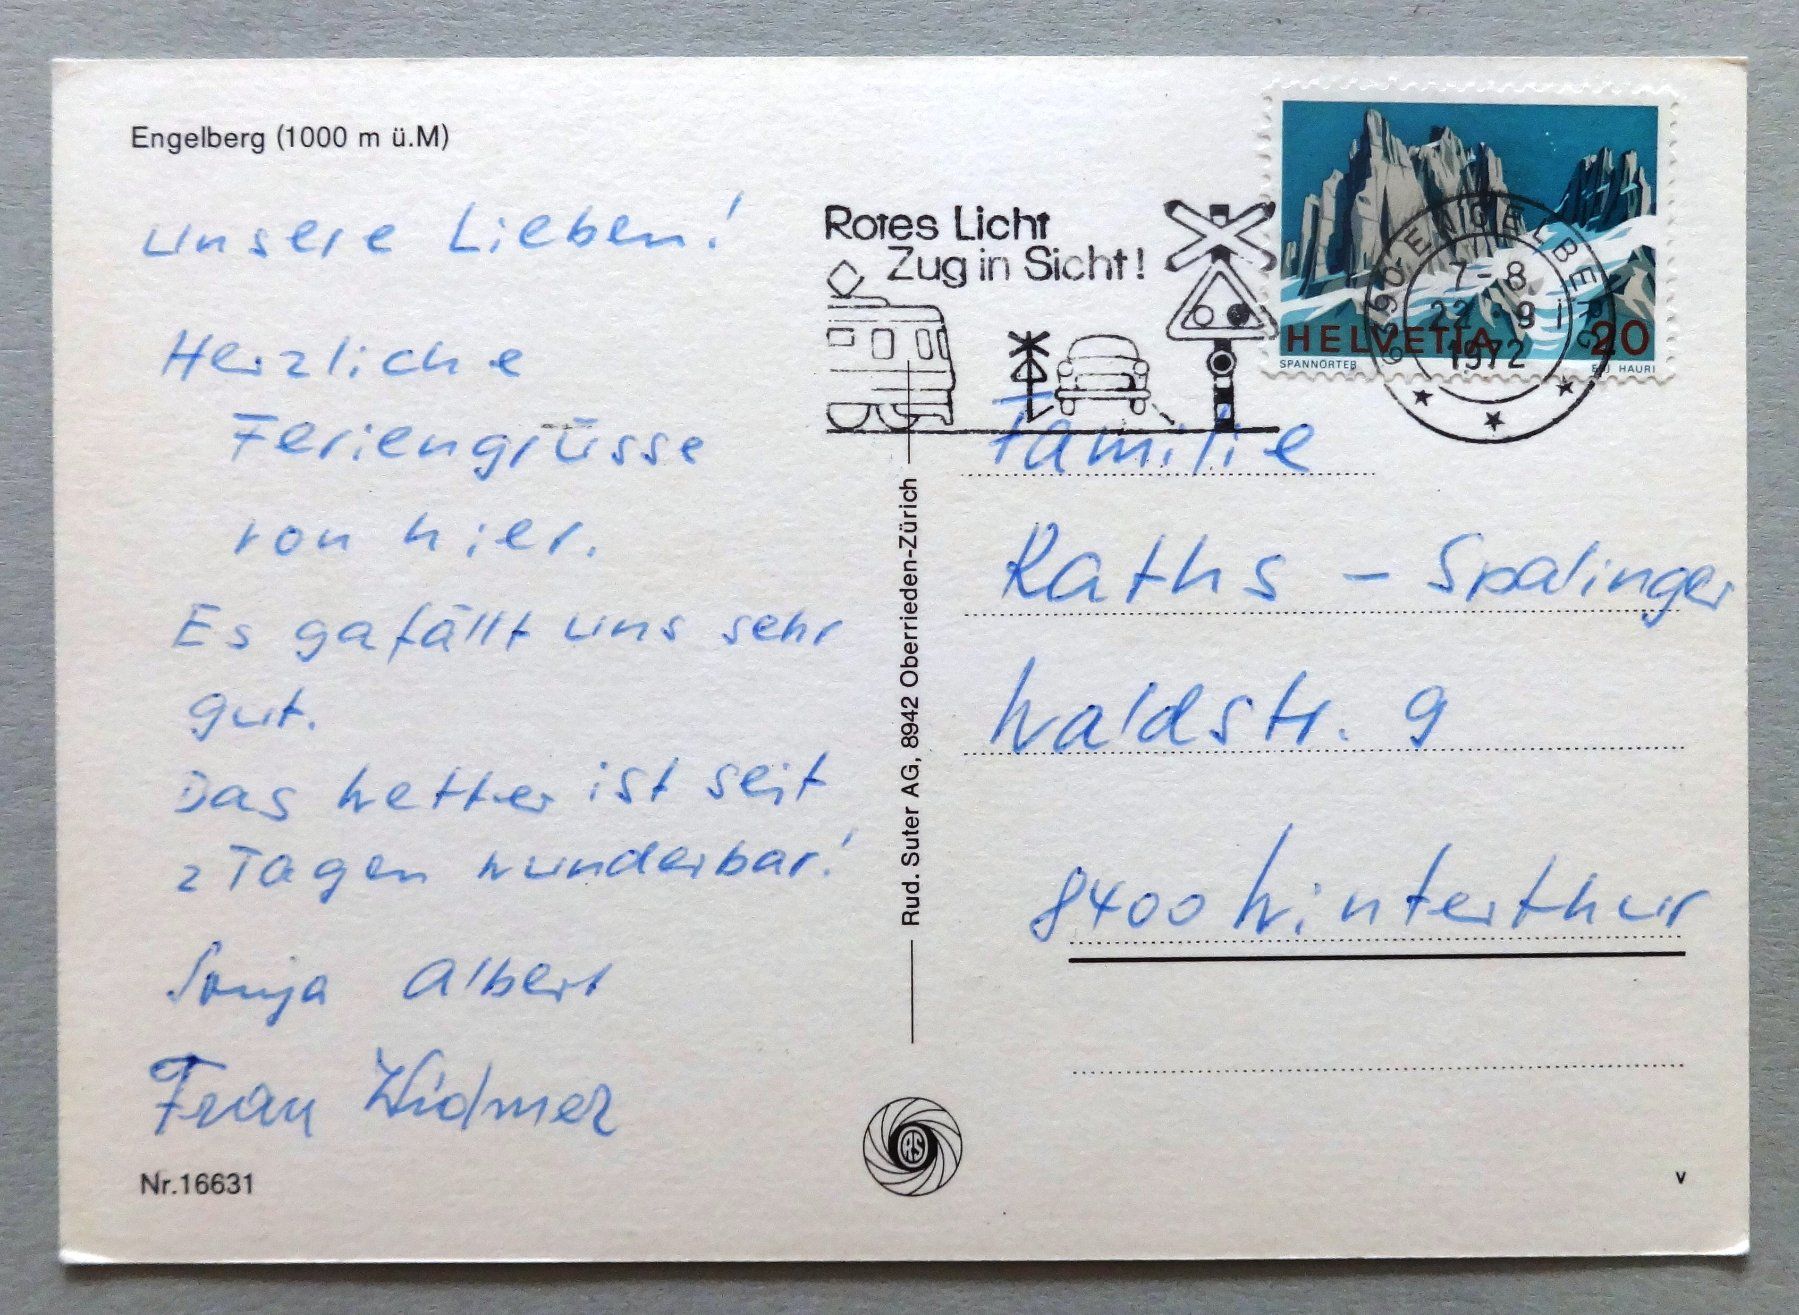 Engelberg (1000 m ü.M)
Unsere Lieben!
Herzliche
Feriengrüsse
von hier.
Es gafällt uns sehr
gut.
Das Wetter ist seit
2 Tagen wunderbar!
Sonja Albert
Frau Widmer
Nr.16631
Rud. Suter AG, 8942 Oberrieden-Zürich
RS
Rotes Licht
Zug in Sicht!
HELVETIA 20
SPANNÖRTER
E+J HAURI
6390 ENGELBERG
7-8
22.9
1972
Familie
Raths - Spalinger
Waldstr. 9
8400 Winterthur
v